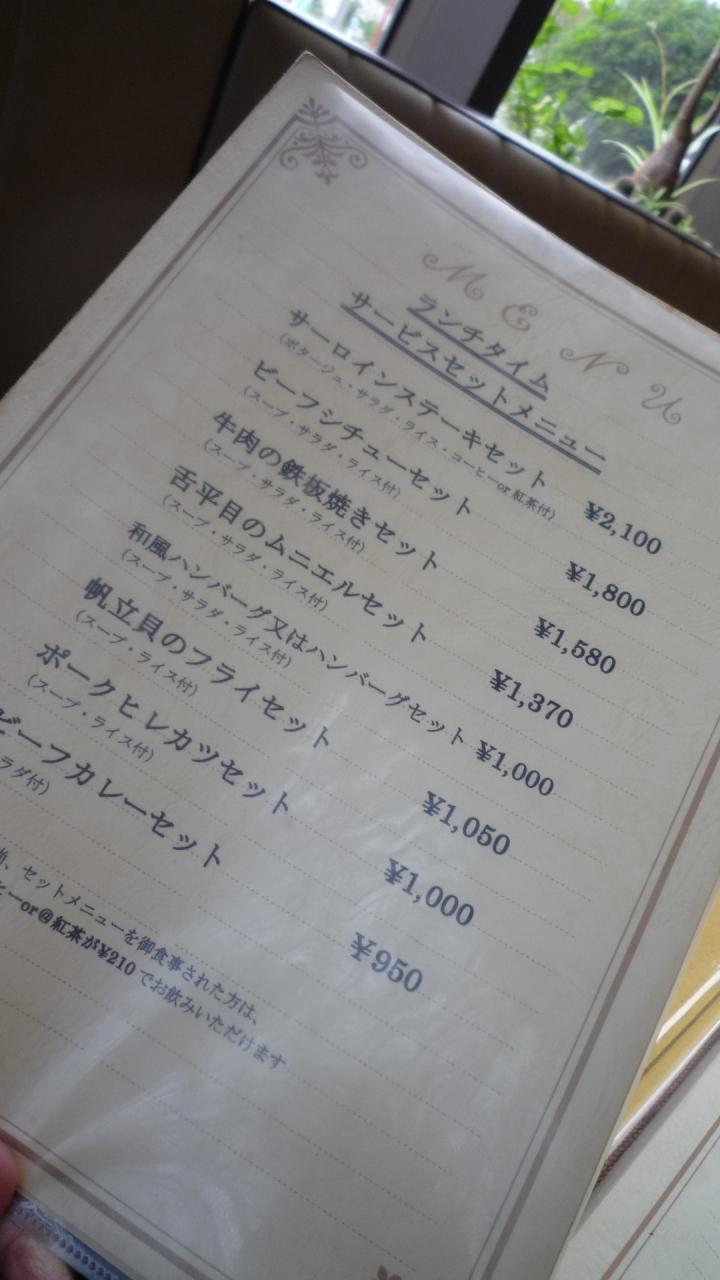 MENU
ランチタイム
サービスセットメニュー
サーロインステーキセット ¥2,100
(ポタージュ・サラダ・ライス・コーヒーor紅茶付)
ビーフシチューセット ¥1,800
(スープ・サラダ・ライス付)
牛肉の鉄板焼きセット ¥1,580
(スープ・サラダ・ライス付)
舌平目のムニエルセット ¥1,370
(スープ・サラダ・ライス付)
和風ハンバーグ又はハンバーグセット ¥1,000
(スープ・サラダ・ライス付)
帆立貝のフライセット ¥1,050
(スープ・ライス付)
ポークヒレカツセット ¥1,000
(スープ・ライス付)
ビーフカレーセット ¥950
ラダ付)
尚、セットメニューを御食事された方は、
ーor@紅茶が¥210でお飲みいただけます